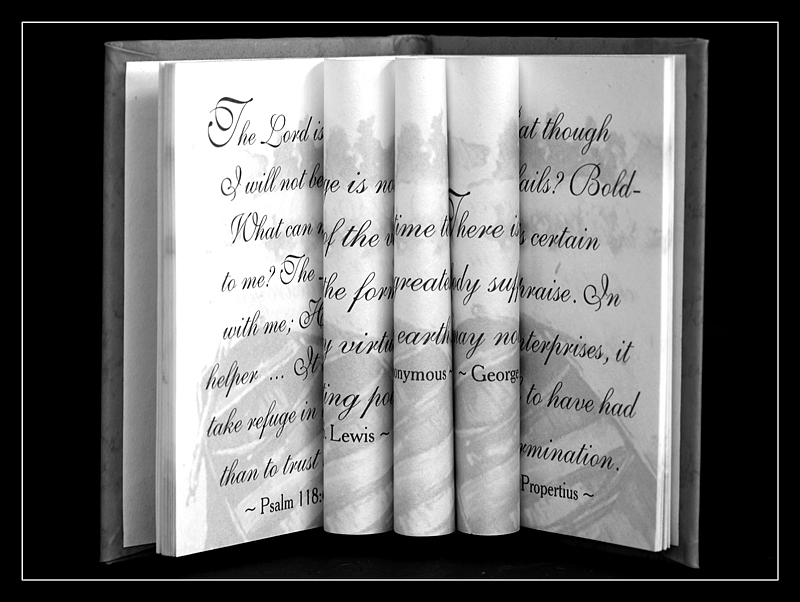 The Lord is
I will not be
What can
to me? The
with me; H
helper ... It
take refuge in
than to trust
~ Psalm 118:
ge is no
of the v
the form
y virtu
ting poi
. Lewis ~
time t
greate
earth
onymous ~
There is
dy suf
may no
~ George
at though
ails? Bold-
s certain
praise. In
terprises, it
to have had
rmination.
Propertius ~